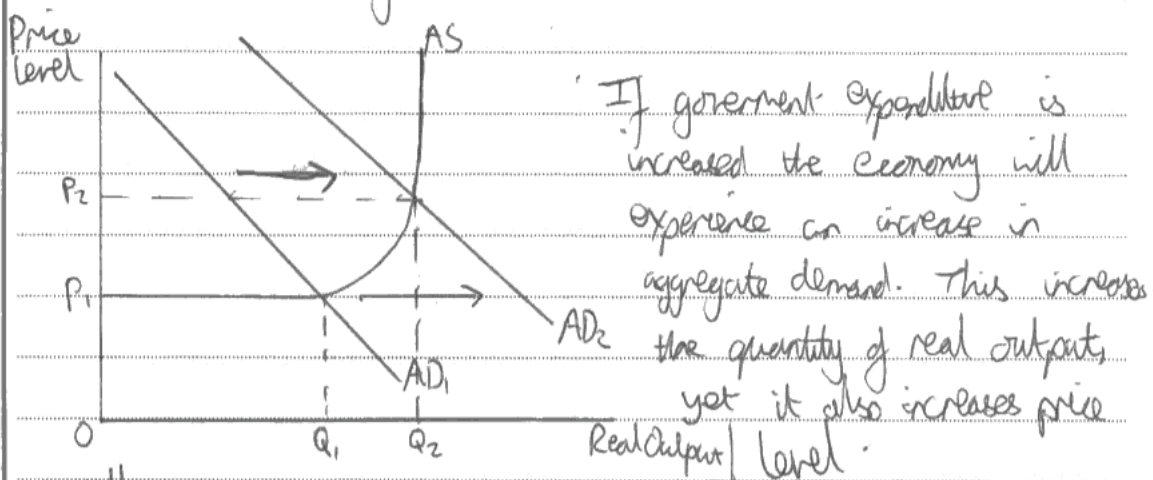 Price
level
AS
P2
P1
AD2
AD1
O
Q1
Q2
Real Output
If goverment expenditure is
increased the economy will
experience an increase in
aggregate demand. This increases
the quantity of real output,
yet it also increases price
level.